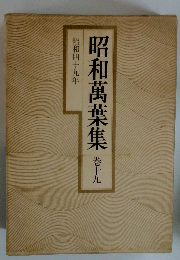 昭和萬葉集
巻十九
昭和四十九年